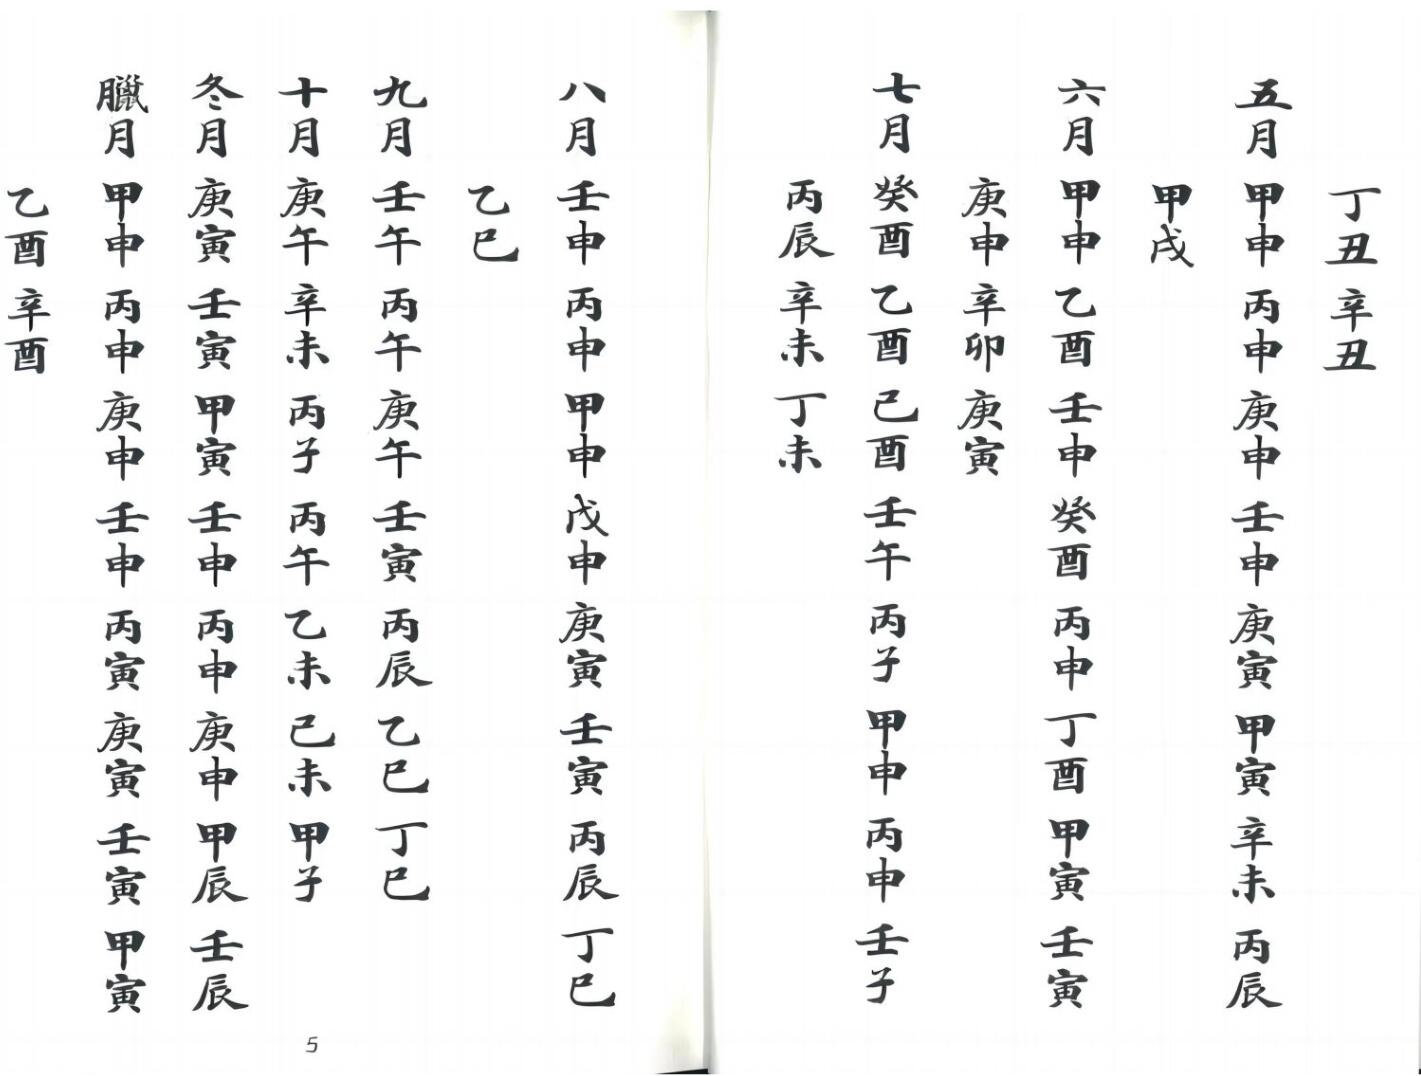 丁丑 辛丑
五月 甲申 丙申 庚申 壬申 庚寅 甲寅 辛未 丙辰
甲戌
六月 甲申 乙酉 壬申 癸酉 丙申 丁酉 甲寅 壬寅
庚申 辛卯 庚寅
七月 癸酉 乙酉 己酉 壬午 丙子 甲申 丙申 壬子
丙辰 辛未 丁未
八月 壬申 丙申 甲申 戊申 庚寅 壬寅 丙辰 丁巳
乙巳
九月 壬午 丙午 庚午 壬寅 丙辰 乙巳 丁巳
十月 庚午 辛未 丙子 丙午 乙未 己未 甲子
冬月 庚寅 壬寅 甲寅 壬申 丙申 庚申 甲辰 壬辰
臘月 甲申 丙申 庚申 壬申 丙寅 庚寅 壬寅 甲寅
乙酉 辛酉
5